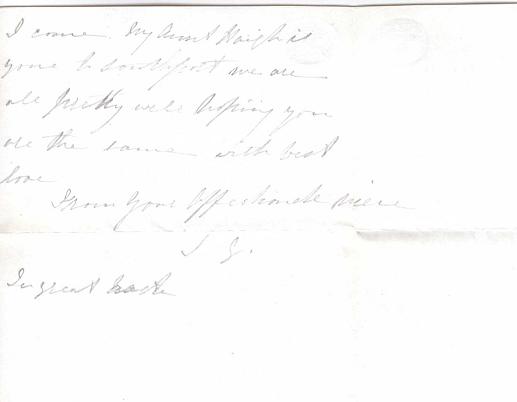 I come. My Aunt Haigh is
gone to southport we are
all pretty well hoping you
are the same with best
love
From your Affectionate niece
J G.
In great haste